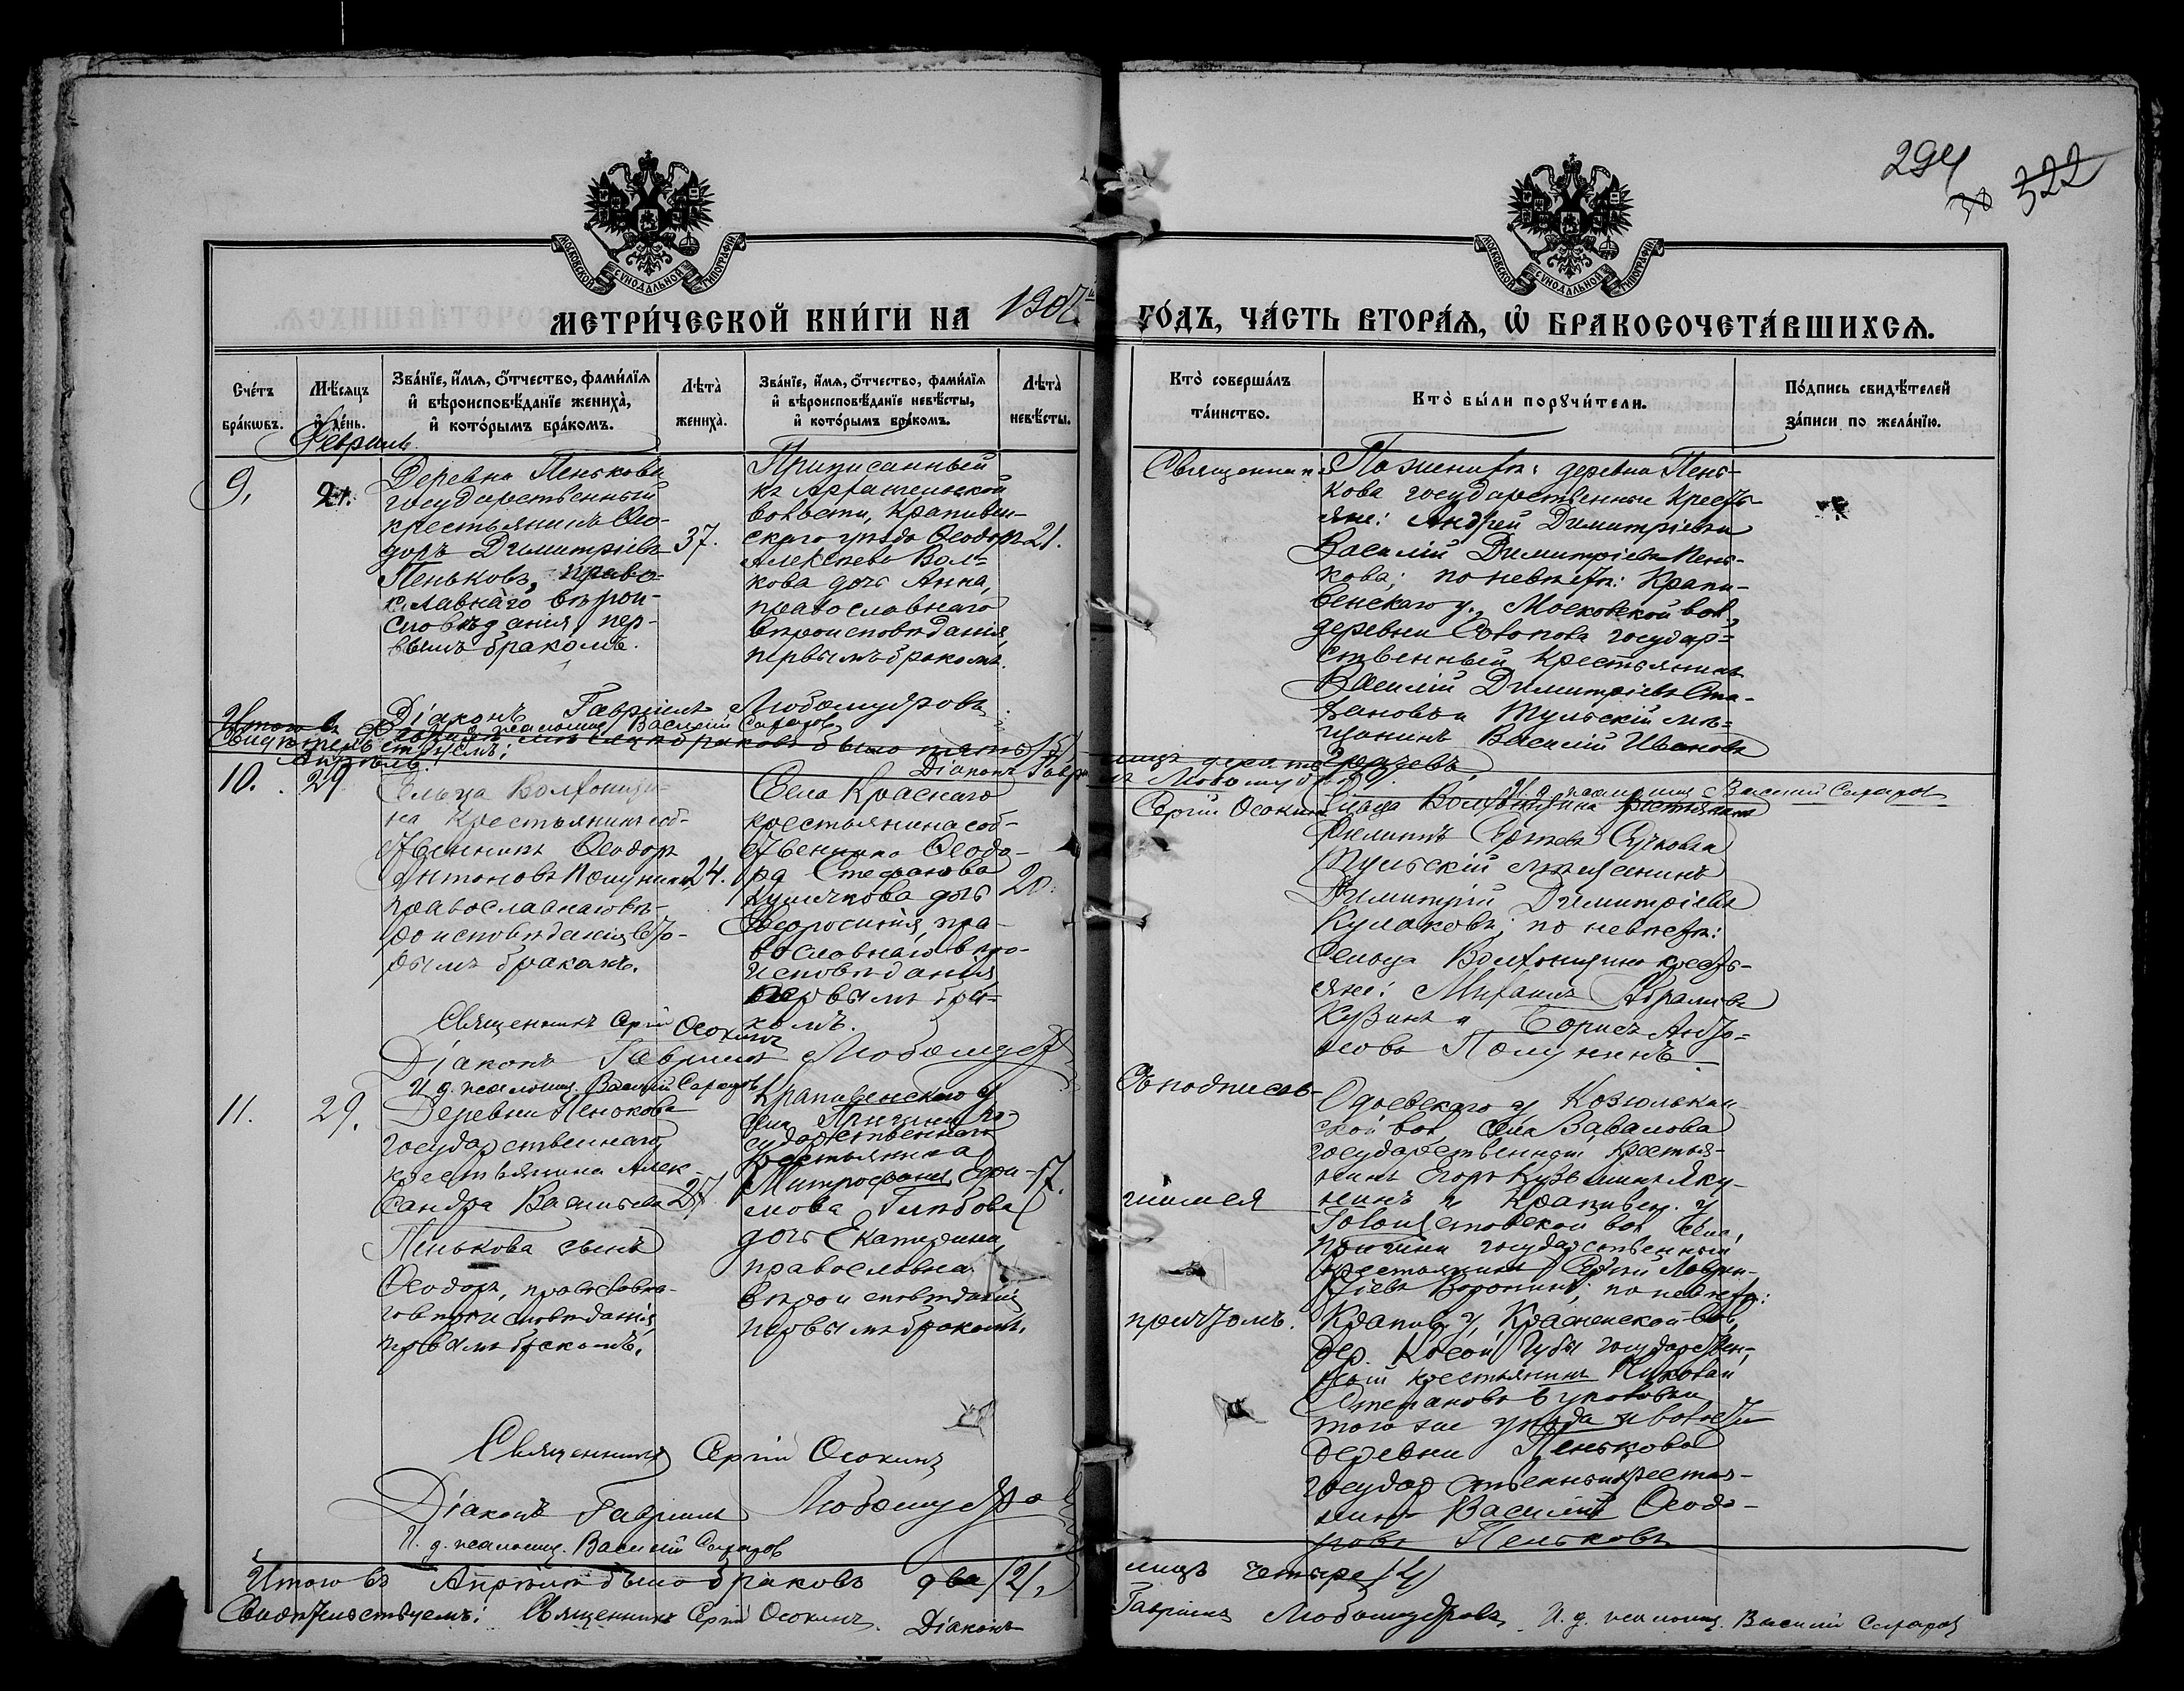 294
38 322
МОСКОВСКОЙ СѴНОДАЛЬНОЙ ТИПОГРАФІИ
МОСКОВСКОЙ СѴНОДАЛЬНОЙ ТИПОГРАФІИ
МЕТРИ́ЧЕСКОЙ КНИ́ГИ НА 1907й ГО́ДЪ, ЧА́СТЬ ВТОРА́Ѧ, Ѡ҆ БРАКОСОЧЕТА́ВШИХСѦ.
Сче́тъ
бра́кѡвъ.
Мѣ́сяцъ
и҆ де́нь.
Зва́нїе, и҆́мѧ, ѻ҆́тчество, фами́лїѧ
и҆ вѣроисповѣ́данїе жениха̀,
и҆ кото́рымъ бра́комъ.
Лѣта̀
жениха̀.
Зва́нїе, и҆́мѧ, ѻ҆́тчество, фами́лїѧ
и҆ вѣроисповѣ́данїе невѣ́сты,
и҆ кото́рымъ бра́комъ.
Лѣта̀
невѣ́сты.
Кто̀ соверша́лъ
та́инство.
Кто̀ бы́ли порꙋчи́тели.
По́дпись свидѣ́телей
за́писи по жела́нїю.
Февраль
9.
21.
Деревни Пенькова
государственный
крестьянинъ Ѳео-
доръ Димитріевъ
Пеньковъ, право-
славнаго вѣрои-
сповѣданія, пер-
вымъ бракомъ.
37.
Приписанный
къ
волости, Крапивен-
скаго уѣзда Ѳеодора
Алексѣева Вол-
кова дочь Анна,
православнаго
вѣроисповѣданія,
первымъ бракомъ.
21.
Священник
По женихѣ: деревни Пень-
кова государственные кресть-
яне: Андрей Димитріевъ и
Василій Димитріевъ Пень-
кова; по невѣстѣ: Крапи-
венскаго у., Московской вол.,
деревни государ-
ственный крестьянинъ
Василій Димитріевъ
и Тульскій мѣ-
щанинъ Василій Ивановъ
Діаконъ Гавріилъ Любомудровъ.
псаломщ. Василій Сахаровъ
Итого въ браковъ было пять /5/
Свидѣтельствуемъ: Діаконъ Гаврі-
лъ Любомудровъ
И. д. псаломщ. Василій Сахаровъ
Апрѣль.
10.
29
Сельца Волхонщи-
на крестьянинъ соб-
ственникъ Ѳеодоръ
Антоновъ Полунинъ
православнаго вѣ-
роисповѣданія, вто-
рымъ бракомъ.
24.
Села Краснаго
крестьянина соб-
ственника Ѳеодо-
ра Стефанова
дочь
православнаго вѣро-
исповѣданія
первымъ бра-
комъ.
20.
Сергій Осокинъ
Сельца Волхонщина крестьянинъ
Филиппъ Сергѣевъ
Тульскій мѣщанинъ
Димитрій Димитріевъ
Кулаковъ; по невѣстѣ:
Сельца Волхонщина кресть-
яне: Михаилъ Абрамовъ
Кузинъ и Борисъ Анто-
новъ Полунинъ.
Священникъ Сергій Осокинъ
Діаконъ Гавріилъ Любомудровъ
И. д. псаломщ. Василій Сахаровъ
11.
29.
Деревни Пенькова
государственнаго
крестьянина Алек-
сандра Васильева
Пенькова сынъ
Ѳеодоръ, православна-
го вѣроисповѣданія,
первымъ бракомъ.
Крапивенскаго у.
села Пришни го-
сударственнаго
крестьянина
Митрофана
Глѣбова
дочь Екатерина,
православна
вѣроисповѣданія
первымъ бракомъ.
17.
Съ подписав-
шимся
причтомъ.
Одоевскаго у.
вол. села
государственный крестья-
нинъ Егоръ Кузьминъ Яку-
нинъ и Крапивен. у
вол. села
Пришни государственный
крестьянинъ Сергій Лаврен-
тіевъ Воронинъ; по невѣстѣ:
Крапив. у, Красненской вол,
дер. Косой Губы государствен-
ный крестьянинъ Николай
Степановъ
того же уѣзда и волости
деревни Пенькова
государственный крестья-
нинъ Василій Ѳеодо-
ровъ Пеньковъ
Священникъ Сергій Осокинъ
Діаконъ Гавріилъ Любомудровъ
И. д. псаломщ. Василій Сахаровъ
Итого въ Апрѣлѣ было браковъ два /2/, лицъ четыре /4/
Свидѣтельствуемъ: Священникъ Сергій Осокинъ. Діаконъ Гавріилъ Любомудровъ. И. д. псаломщ. Василій Сахаровъ